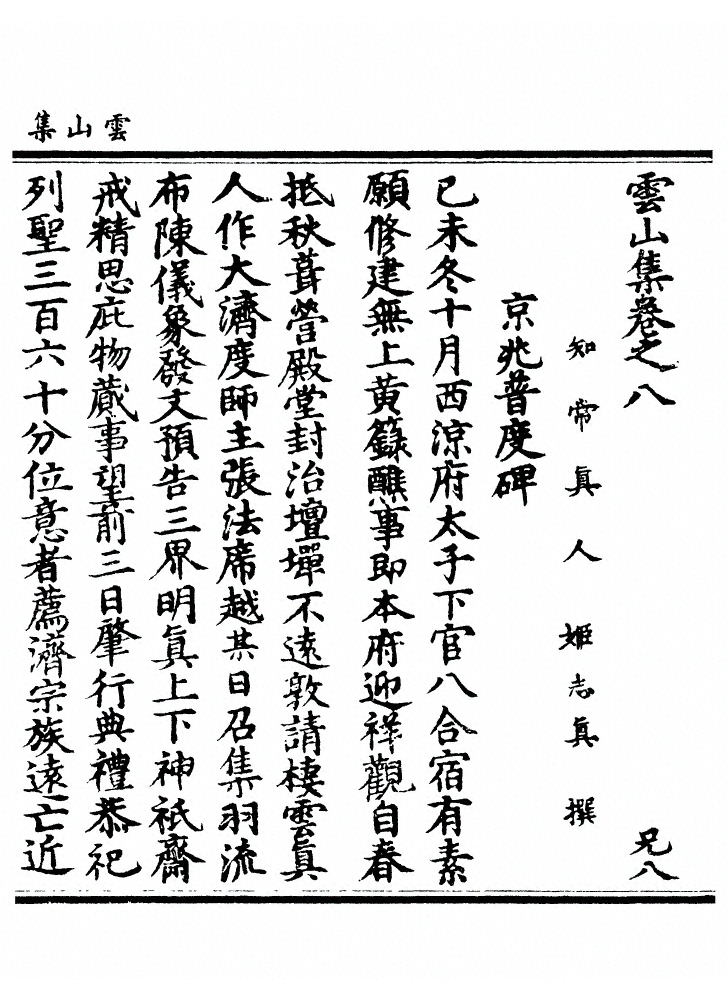 雲山集
雲山集卷之八　兄八
知常真人姬志真撰
京兆普度碑
己未冬十月西涼府太子下官八合宿有素
願修建無上黃籙醮事即本府迎祥觀自春
抵秋葺營殿堂封治壇墠不遠敦請棲雲真
人作大濟度師主張法席越某日召集羽流
布陳儀象發文預告三界明真上下神祇齋
戒精思庇物蕆事望前三日肇行典禮恭祀
列聖三百六十分位意者薦濟宗族遠亡近